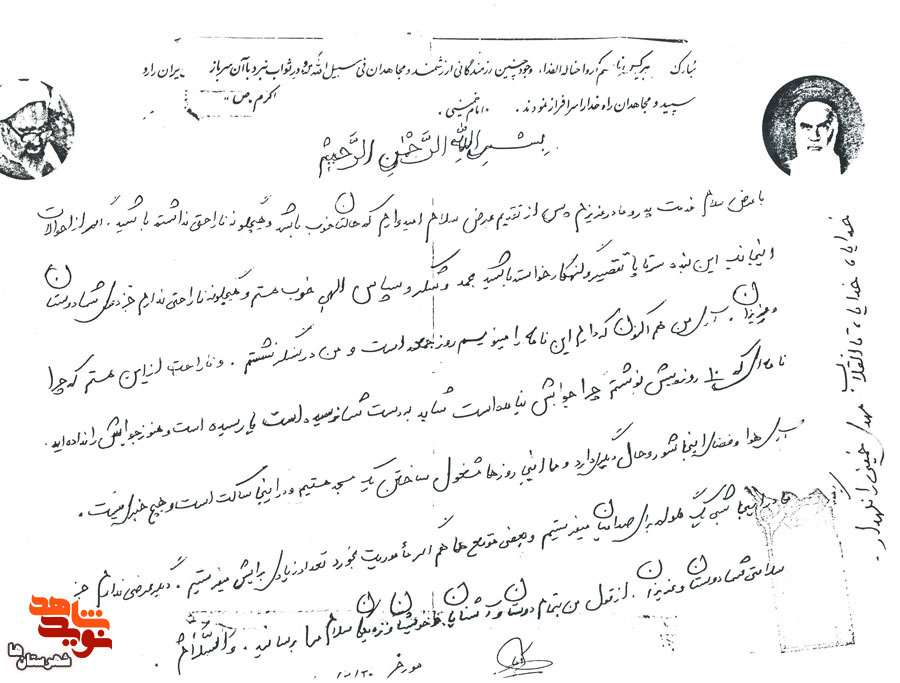 مبارک هر کس ارواحنا له الفداء، وجود چنین رزمندگانی ارزشمند و مجاهدان فی سبیل الله که در ثواب نبرد با آن سرباز
سپید و مجاهدان راه خدا را سرافراز نمودند. «امام خمینی» اکرم «ص»
بسم الله الرحمن الرحیم
با عرض سلام خدمت پدر و مادر عزیزم پس از تقدیم عرض سلام امیدوارم که حالتان خوب باشد و هیچگونه ناراحتی نداشته باشید. اگر از احوالات
اینجانب این بنده سرتا پا تقصیر و گنهکار خواسته باشید بحمد و شکر و سپاس الهی خوب هستم و هیچگونه ناراحتی ندارم جز دوری شما دوستان
و عزیزان. من هم اکنون که دارم این نامه را مینویسم روز جمعه است و من در سنگر نشستم. و ناراحت از این هستم که چرا
نامه‌ای که ۱۰ روز پیش نوشتم چرا جوابش نیامده است شاید به دست شما نرسیده است یا رسیده است و هنوز جوابش را نداده‌اید.
هوا و فضای اینجا شور و حال دیگری دارد و ما اینجا روزها مشغول ساختن یک مسجد هستیم و در اینجا ساکت است و هیچ خبری نیست.
ما در اینجا شبی یک گلوله برای صدامیان میفرستیم و بعضی موقع ها هم اگر مأموریت بخورد تعداد زیادی برایش میفرستیم. دیگر عرضی ندارم جز
سلامتی شما دوستان و عزیزان. از قول من بتمام دوستان و آشنایان و خویشان سلام مرا برسانید. والسلام
مورخ
خدایا، خدایا، تا انقلاب مهدی خمینی را نگهدار.
نوید شاهد
شهرستان ها